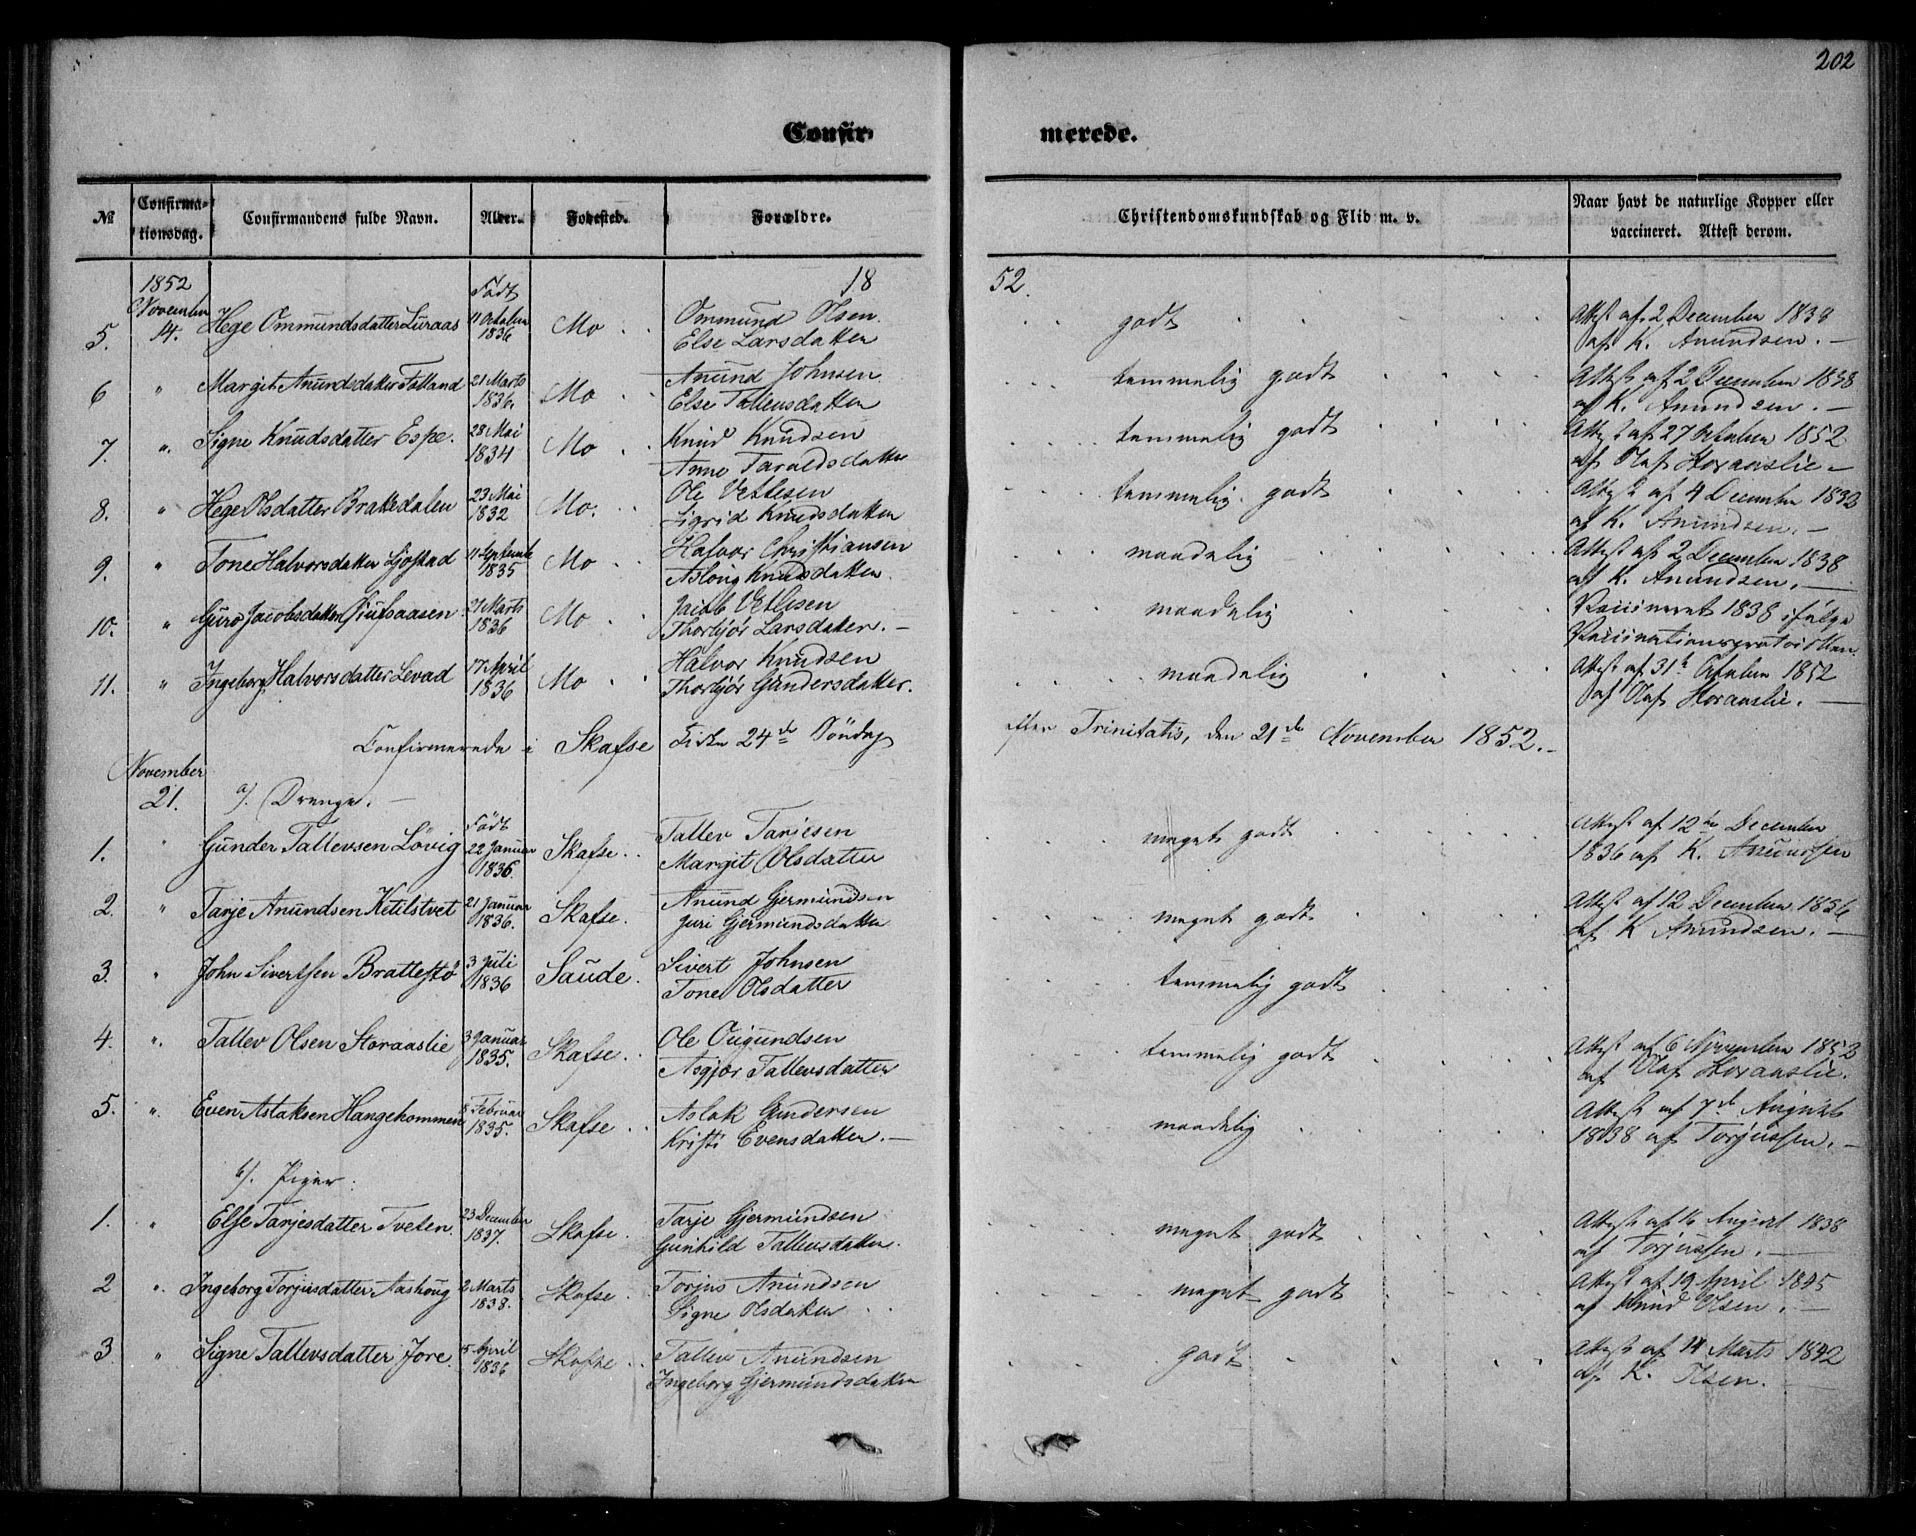 202
Confir- merede.
№ Confirma- Confirmandens fulde Navn. Alder. Fødested. Forældre. Christendomskundskab og Flid m. v. Naar havt de naturlige Kopper eller
tionsdag. vaccineret. Attest derom.
1852 Født 18 52.
5. November 14. Hege Ommundsdatter Luraas 11 October 1836 Mo Ommund Olsen godt Attest af 2 December 1838
Else Larsdatter af K. Anundsen.
6 " Margit Anundsdatter Felland 21 Marts 1836. Mo Anund Johnsen temmelig godt Attest af 2 December 1838
Else Tallevsdatter af K. Anundsen.
7. " Signe Knudsdatter Espe. 28 Mai 1834 Mo Knud Knudsen temmelig godt Attest af 27 October 1852
Anne Taraldsdatter af Olaf Horaaslie
8. " Hege Olsdatter Brakedalen 23 Mai 1832 Mo. Ole Vetlesen temmelig godt Attest af 4 December 1832
Sigrid Knudsdatter af K. Anundsen.
9. " Tone Halvorsdatter Ljosstad 11 Septemb 1835 Mo Halvor Christiansen maadelig Attest af 2 December 1838
Aslaug Knudsdatter af K. Anundsen.
10. " Guro Jacobsdatter 21 Marts 1836 Mo Jacob Vetlesen maadelig Vaccineret 1838 ifølge
Thorbjør Larsdatter. Vaccinationsprotocollen.
11. " Ingeborg Halvorsdatter Levad 17 April 1836 Mo Halvor Knudsen maadelig Attest af 31te October 1852
Thorbjør Gundersdatter. af Olaf Horaaslie.
Confirmerede i Skafse Kirke 24de Søndag efter Trinitatis, den 21de November 1852.
November
21. a). Drenge.
Født
1. " Gunder Tallevsen Løvig 22 Januar 1836. Skafse Tallev Tarjesen meget godt Attest af 12te December
Margit Olsdatter 1836 af K. Anundsen
2. " Tarje Anundsen Ketilstvet 21 Januar 1836. Skafse. Anund Gjermundsen meget godt Attest af 12 December 1836
Juri Gjermundsdatter af K Anundsen.
3. " John Sivertsen Brattestø 3 Juli 1836 Saude. Sivert Johnsen temmelig godt
Tone Olsdatter
4. " Tallev Olsen Storaaslie 3 Januar 1835. Skafse Ole Ougundsen temmelig godt Attest af 6 November 1852
Asgjær Tallevsdatter af Olaf Horaaslie.
5. " Even Aslaksen Hangehommen 8 Februar 1835. Skafse Aslak Gundersen maadelig Attest af 7de August
Kristi Evensdatter. 1838 af Torjussen.
b). Piger.
1. " Else Tarjesdatter Tveten 23 December 1837. Skafse. Tarje Gjermundsen meget godt Attest af 16 August 1838
Gunhild Tallevsdatter. af Torjussen.
2 " Ingeborg Torjusdatter Aashoug 2 Marts 1838. Skafse Torjus Anundsen meget godt Attest af 19 April 1845
Signe Olsdatter af Knud Olsen.
3 " Signe Tallevsdatter Jore. 5 April 1836 Skafse Tallev Anundsen godt Attest af 14 Marts 1842
Ingeborg Gjermundsdatter af K. Olsen.